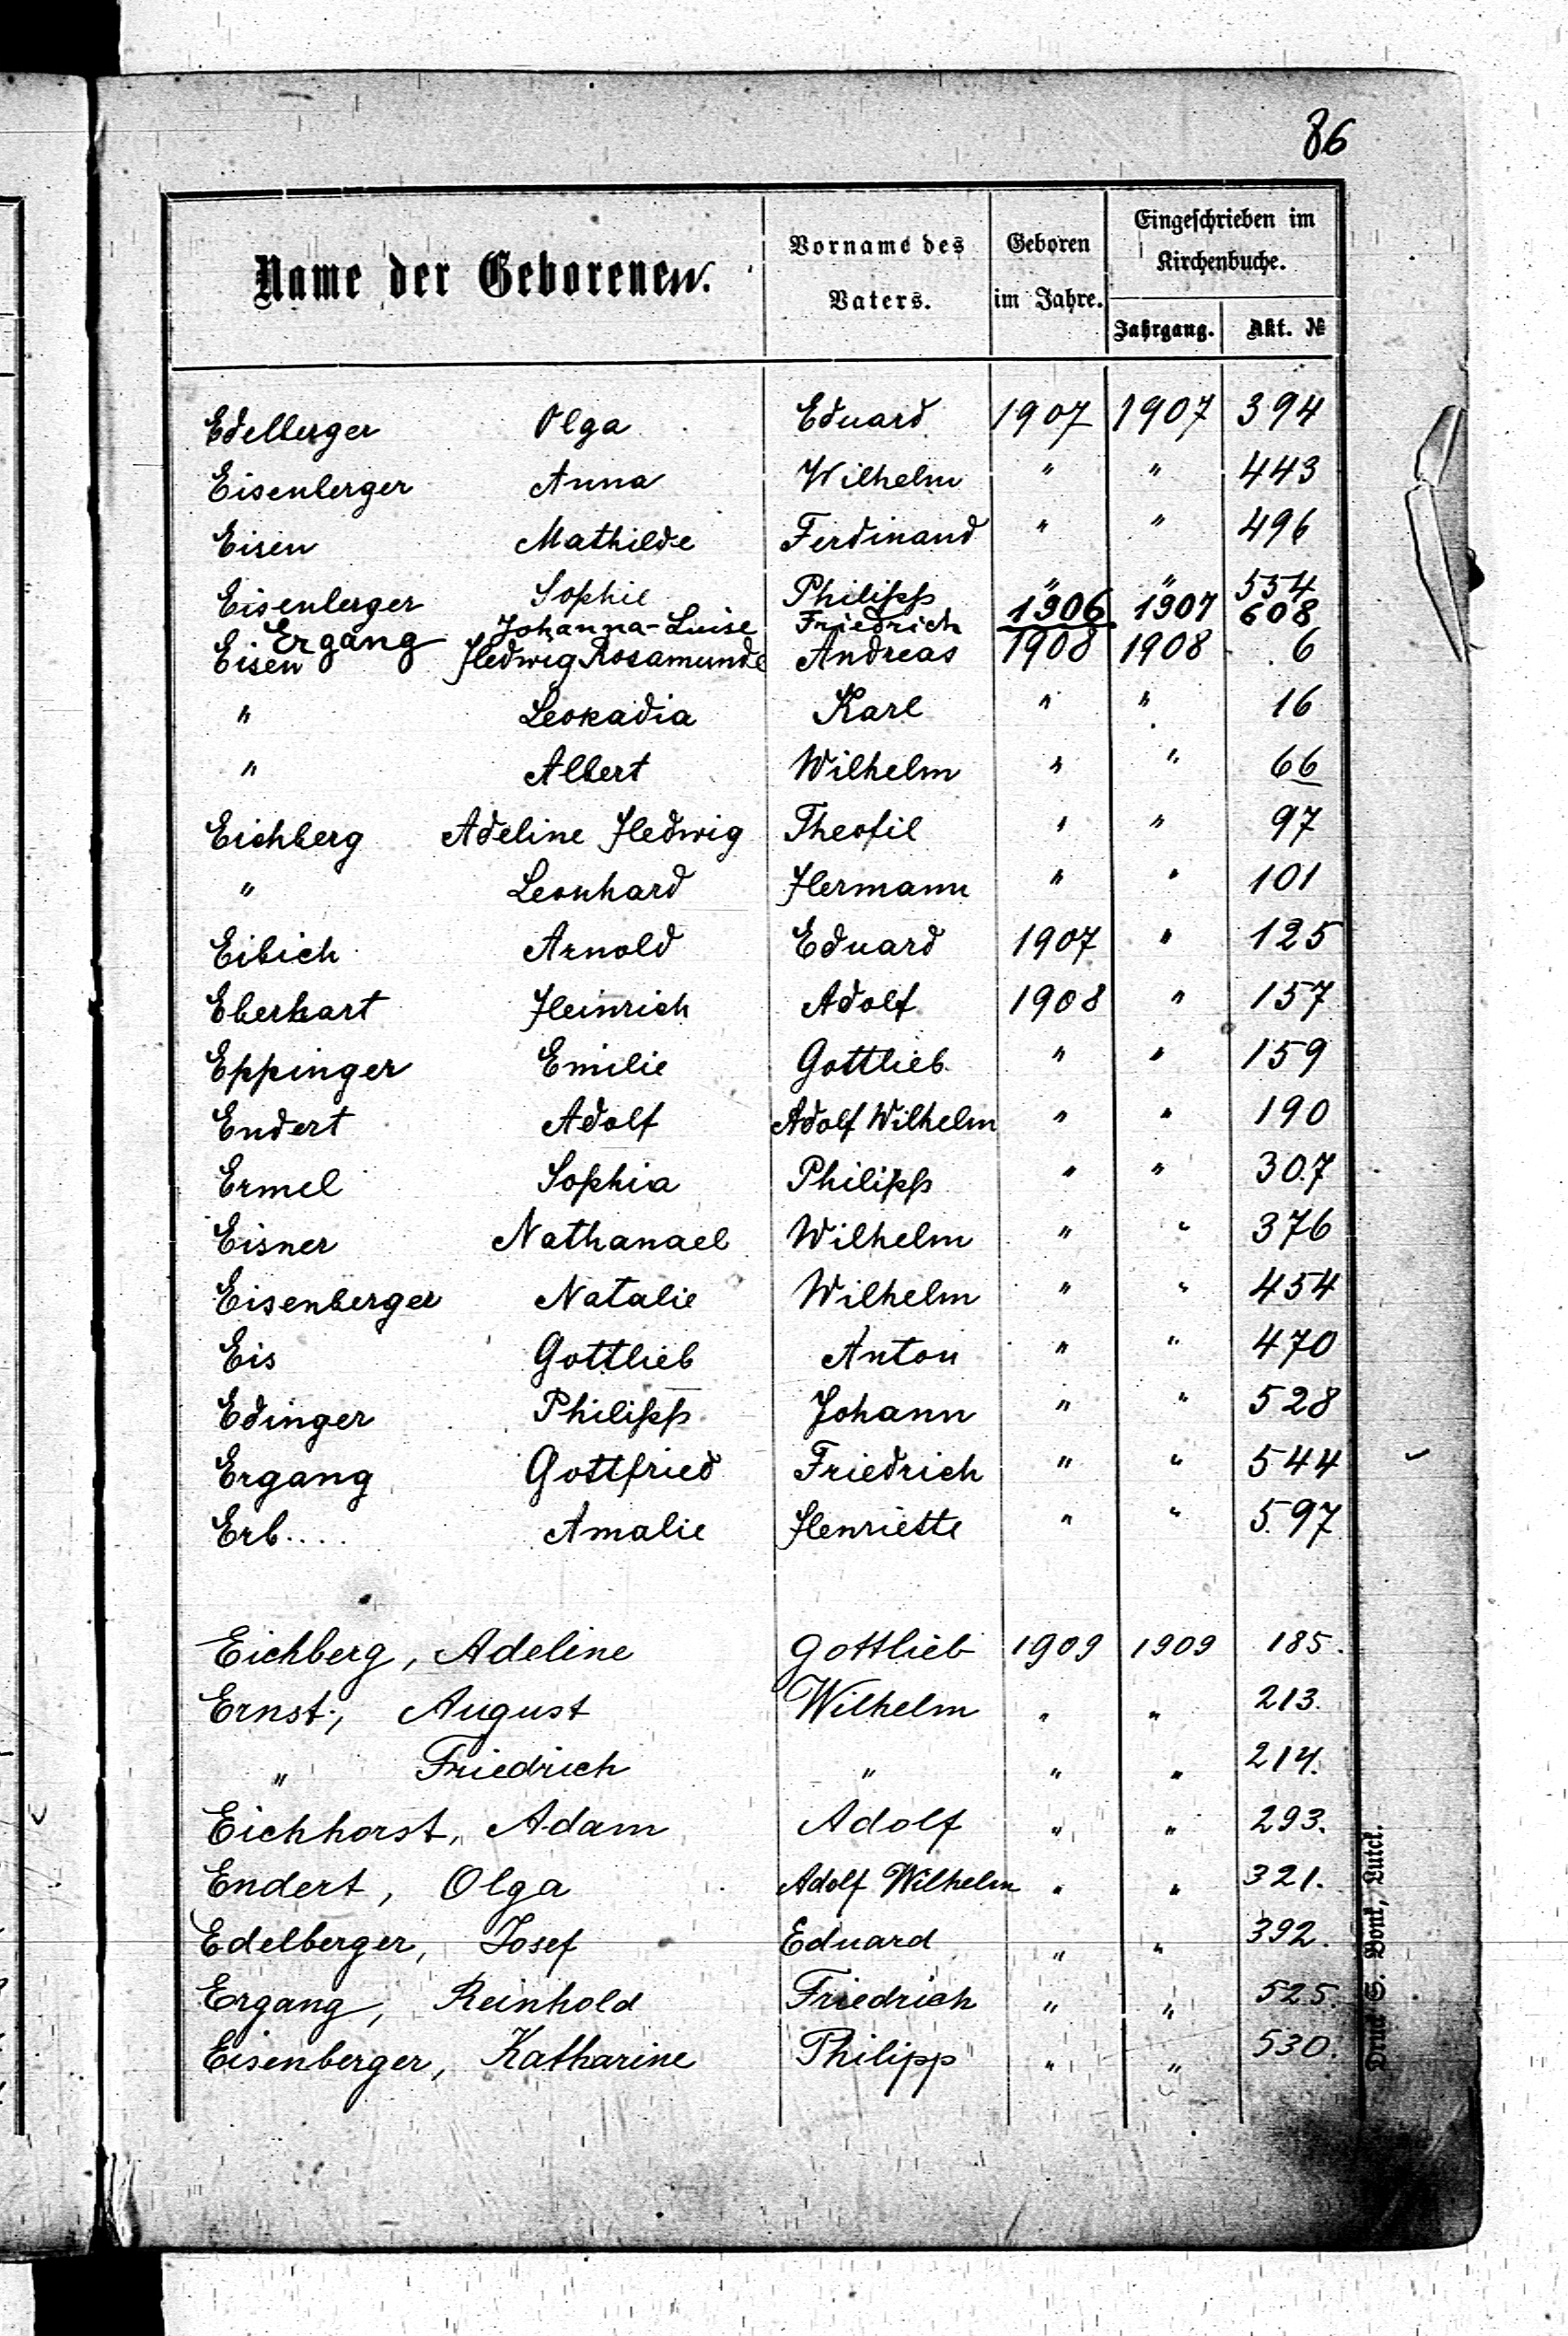 86
Name der Geborenen. Vorname des Vaters. Geboren im Jahre. Eingeschrieben im Kirchenbuche.
Jahrgang. Akt. №
Edelberger Olga Eduard 1907 1907 394
Eisenberger Anna Wilhelm " " 443
Eisen Mathilde Ferdinand " " 496
Eisenberger Sophie Philipp " " 554
Ergang Johanna-Luise Friedrich 1906 1907 608
Eisen Hedwig Rosamunde Andreas 1908 1908 6
" Leokadia Karl " " 16
" Albert Wilhelm " " 66
Eichberg Adeline Hedwig Theofil " " 97
" Leonhard Hermann " " 101
Eibich Arnold Eduard 1907 " 125
Eberhart Heinrich Adolf 1908 " 157
Eppinger Emilie Gottlieb " " 159
Endert Adolf Adolf Wilhelm " " 190
Ermel Sophia Philipp " " 307
Eisner Nathanael Wilhelm " " 376
Eisenberger Natalie Wilhelm " " 454
Eis Gottlieb Anton " " 470
Edinger Philipp Johann " " 528
Ergang Gottfried Friedrich " " 544
Erb.... Amalie Henriette " " 597
Eichberg, Adeline Gottlieb 1909 1909 185.
Ernst, August Wilhelm " " 213.
" Friedrich " " " 214.
Eichhorst, Adam Adolf " " 293.
Endert, Olga Adolf Wilhelm " " 321.
Edelberger, Josef Eduard " " 392.
Ergang, Reinhold Friedrich " " 525.
Eisenberger, Katharine Philipp " " 530.
Druck S. Bonk, Lutck.